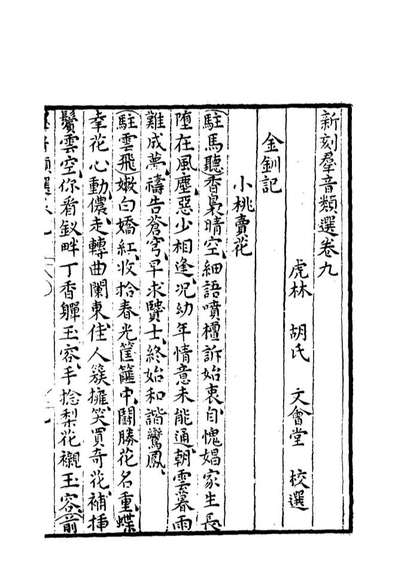 新刻羣音類選卷九
虎林 胡氏 文會堂 校選
金釧記
小桃賣花
駐馬聽香裊晴空細語噴檀訴始衷自愧娼家生長
墮在風塵惡少相逢况幼年情意未能通朝雲暮雨
難成夢禱告蒼穹早求賢士終始和諧鸞鳳
駐雲飛嫩白嬌紅收拾春光筐籠中鬬勝花名重蝶
幸花心動儂走轉曲闌東佳人簇擁笑買奇花補插
鬢雲空你看釵畔丁香嚲玉容手捻梨花襯玉容前